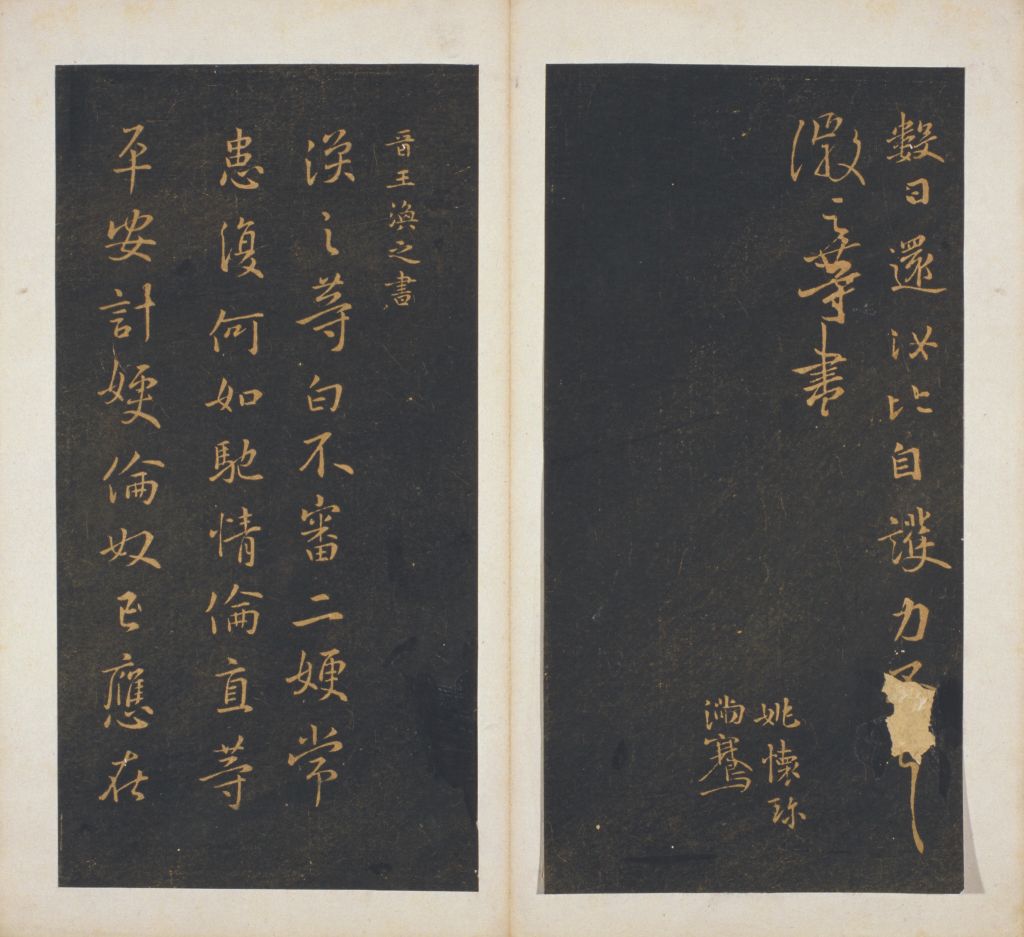 數日還汝比自護力不
徽之等書
姚懷珍
滿騫
晉王渙之書
渙之等白不審二嫂常
患復何如馳情倫直等
平安計嫂倫奴已應在